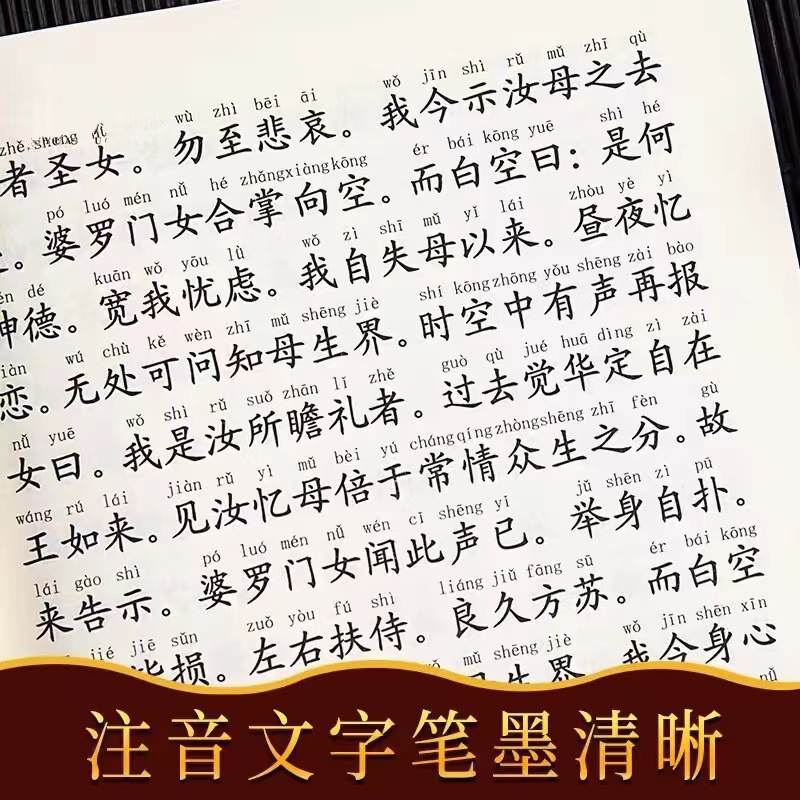 wù zhì bēi āi wǒ jīn shì rǔ mǔ zhī qù
者圣女。勿至悲哀。我今示汝母之去
pó luó mén nǚ hé zhǎng xiàng kōng ér bái kōng yuē shì hé
。婆罗门女合掌向空。而白空曰：是何
dé kuān wǒ yōu lǜ wǒ zì shī mǔ yǐ lái zhòu yè yì
神德。宽我忧虑。我自失母以来。昼夜忆
wú chù kě wèn zhī mǔ shēng jiè shí kōng zhōng yǒu shēng zài bào
恋。无处可问知母生界。时空中有声再报
nǚ yuē wǒ shì rǔ suǒ zhān lǐ zhě guò qù jué huā dìng zì zài
女曰。我是汝所瞻礼者。过去觉华定自在
wáng rú lái jiàn rǔ yì mǔ bèi yú cháng qíng zhòng shēng zhī fèn gù
王如来。见汝忆母倍于常情众生之分。故
lái gào shì pó luó mén nǚ wén cǐ shēng yǐ jǔ shēn zì pū
来告示。婆罗门女闻此声已。举身自扑。
jié jiē sǔn zuǒ yòu fú shì liáng jiǔ fāng sū ér bái kōng
损。左右扶侍。良久方苏。而白空
mǔ shēng jiè wǒ jīn shēn xīn
母生界。我今身心
注音文字笔墨清晰